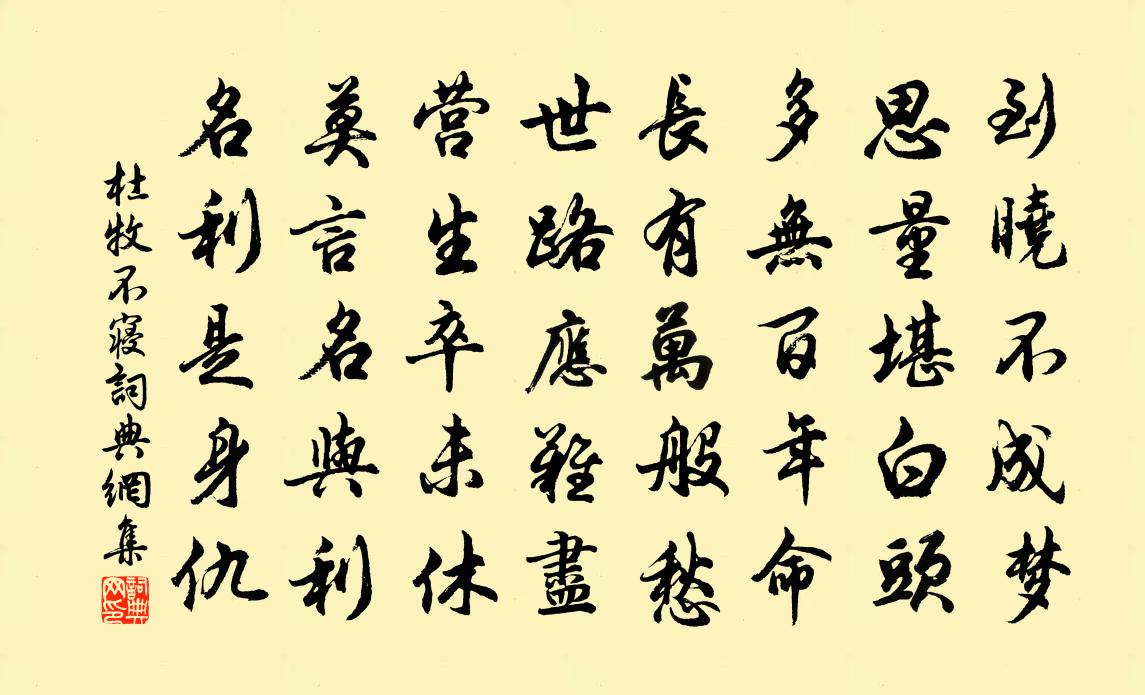 到曉不成梦
思量堪白頭
多無百年命
長有萬般愁
世路應難盡
营生卒未休
莫言名與利
名利是身仇
杜牧不寝詞典網集
詞典
网印